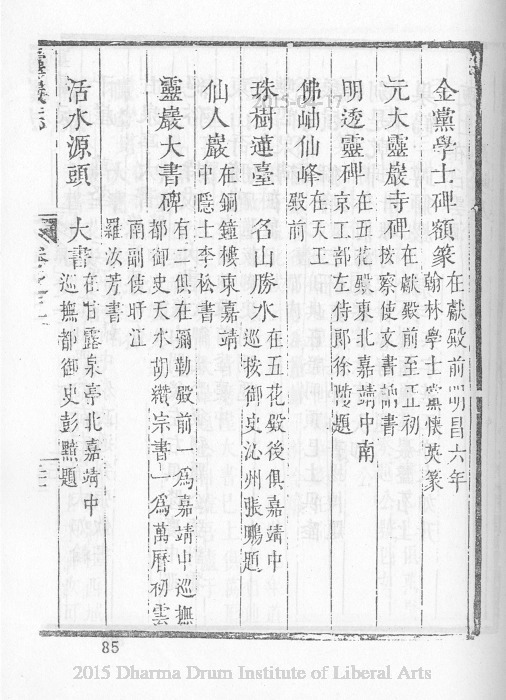 金黨學士碑額篆 在獻殿前明昌六年翰林學士黨懷英篆
元大靈巖寺碑 在獻殿前至正初按察使文書訥書
明透靈碑 在五花殿東北嘉靖中南京工部左侍郎徐陟題
佛岫仙峰 在天王殿前
珠樹蓮臺 名山勝水 在五花殿後俱嘉靖中巡按御史沁州張鵬題
仙人巖 在銅鐘樓東嘉靖中隱士李松書
靈巖大書碑 有二俱在彌勒殿前一爲嘉靖中巡撫都御史天水胡纘宗書一爲萬曆初雲
南副使旴江羅汝芳書
活水源頭 大書 在甘露泉亭北嘉靖中巡撫都御史彭黯題
靈巖志
卷之二
85
2015 Dharma Drum Institute of Liberal Arts